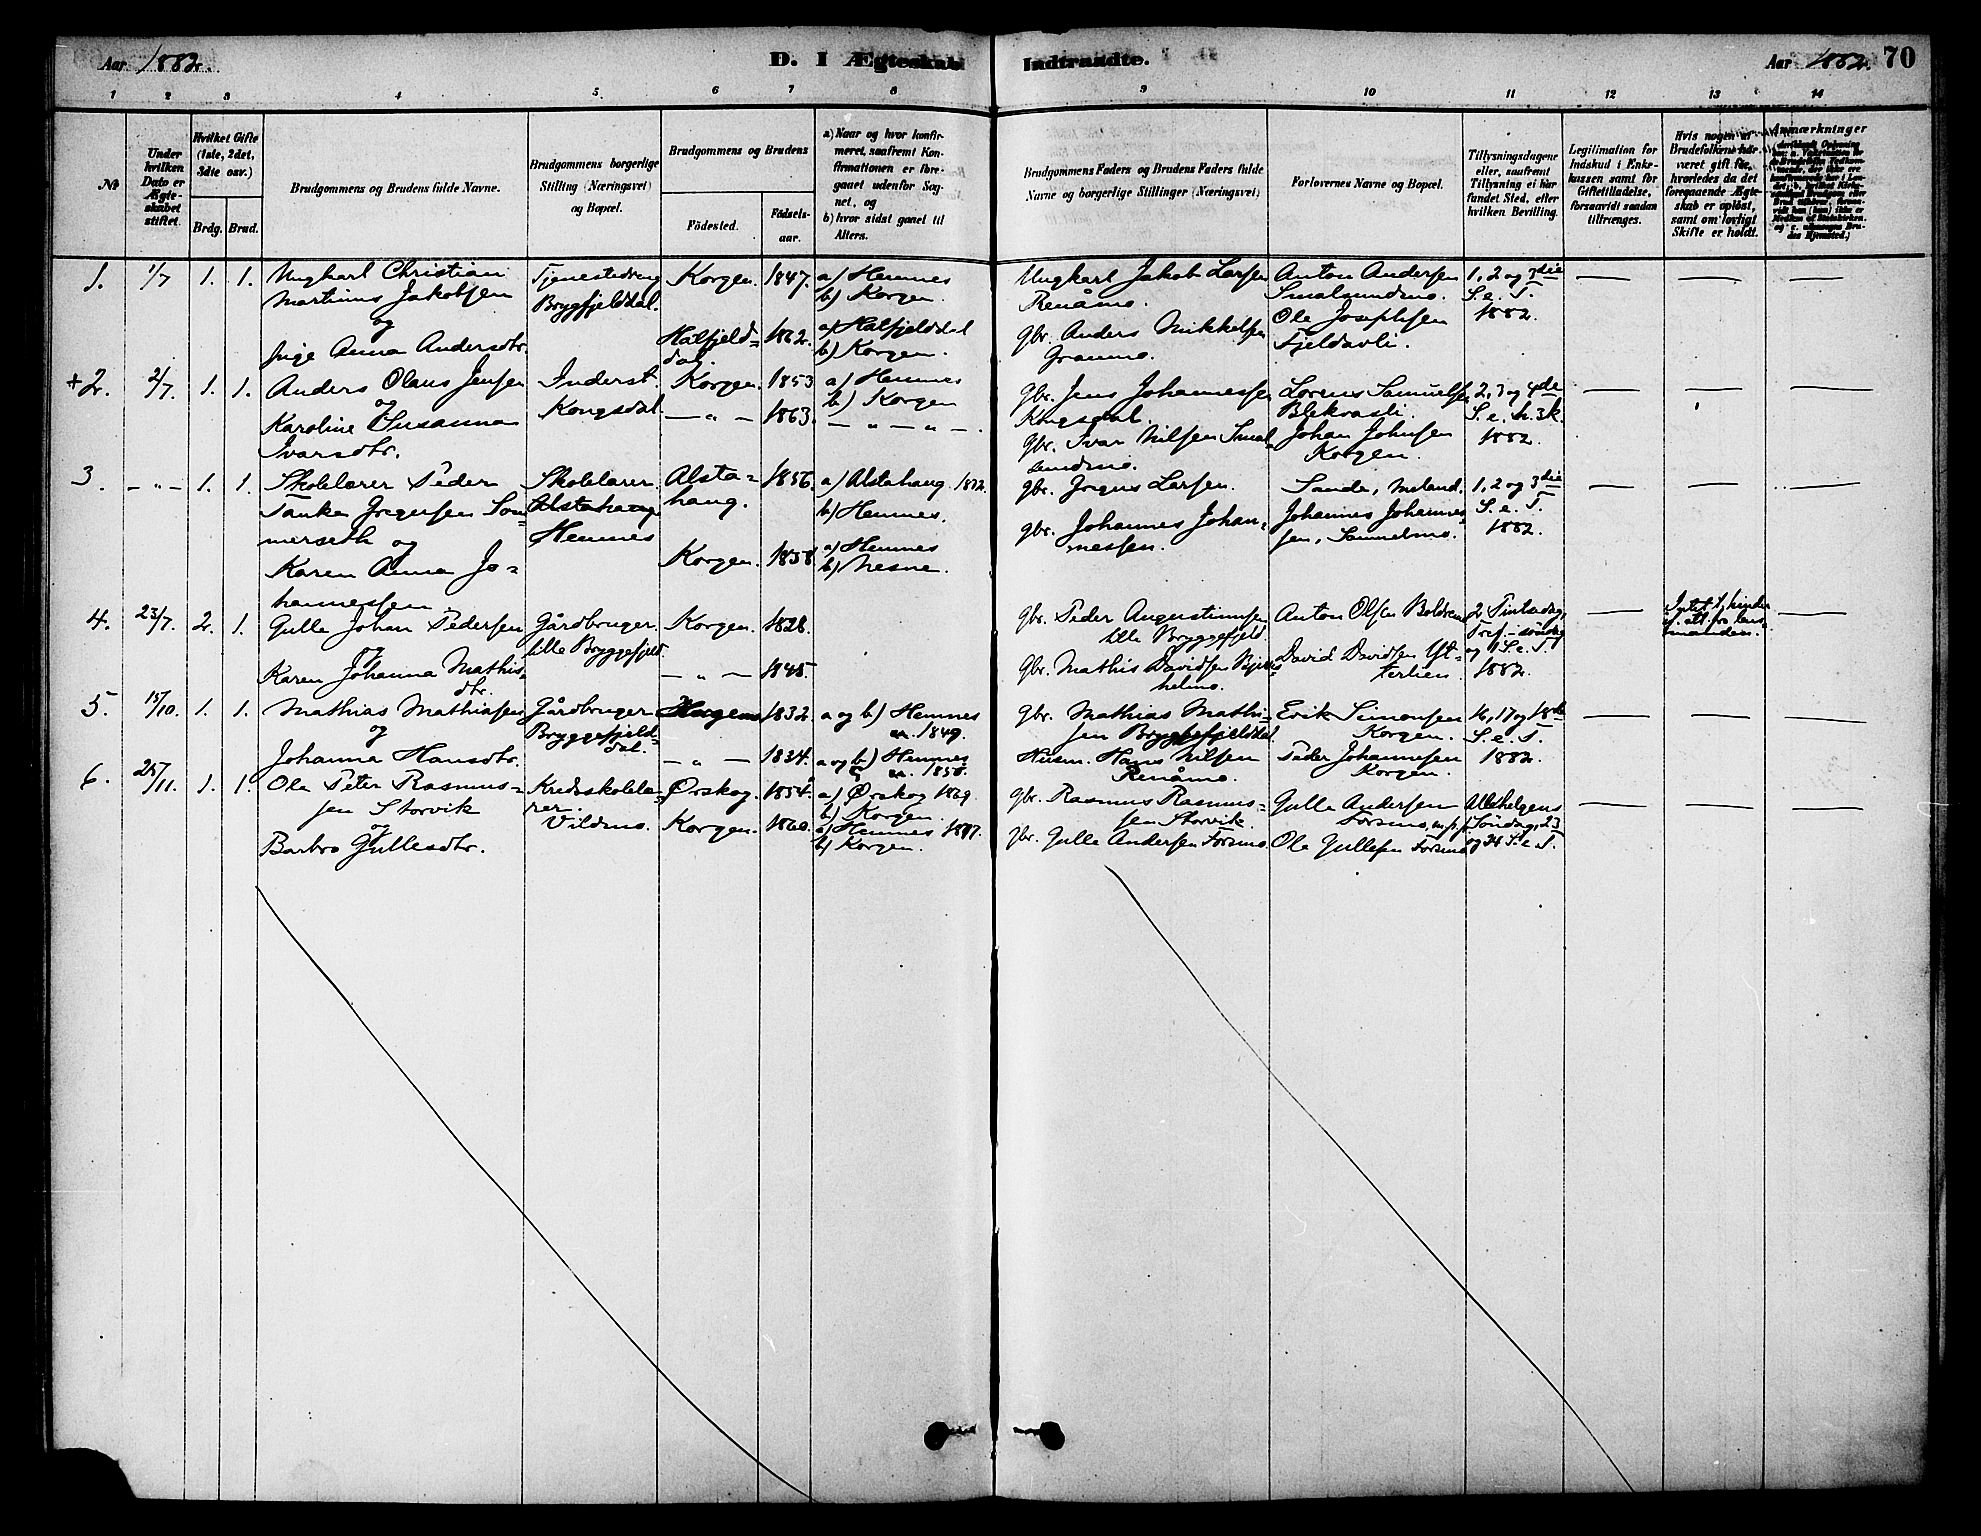 Aar 1882.
D. I Ægteskab
Indtraadte.
Aar 1882. 70
1 2 3 4 5. 6 7 8 9 10 11 12 13 14
№
Under hvilken Dato er Ægteskabet stiftet.
Hvilket Gifte (1ste, 2det, 3die osv.)
Brdg. Brud.
Brudgommens og Brudens fulde Navne.
Brudgommens borgerlige Stilling (Næringsvei) og Bopæl.
Brudgommens og Brudens
Födested.
Födselsaar.
a) Naar og hvor konfirmeret, saafremt Konfirmationen er foregaaet udenfor Sognet, og
b) hvor sidst gaaet til Alters.
Brudgommens Faders og Brudens Faders fulde Navne og borgerlige Stillinger (Næringsvei)
Forlovernes Navne og Bopæl.
Tillysningsdagene eller, saafremt Tillysning ei har fundet Sted, efter hvilken Bevilling.
Legitimation for Indskud i Enkekassen samt for Giftetilladelse, forsaavidt saadan tiltrænges.
Hvis nogen af Brudefolkene har været gift før, hvorledes da det foregaaende Ægteskab er opløst, samt om lovligt Skifte er holdt.
Anmærkninger
1. 1/7 1. 1. Ungkarl Christian Tjenestedreng Korgen. 1847. a) Hemnes Ungkarl Jakob Larsen Anton Andersen 1, 2 og 3die
Martinus Jakobsen Bryggfjelddal. b) Korgen. Renåmo. Smalsundmo. S. e. T.
og Hatfjeld= 1862. a) Hatfjelddal gbr. Anders Mikkelsen Ole Josephsen 1882.
Inge Anna Andersdtr. dal. b) Korgen. Granmo. Fjeldavli.
+ 2. 2/7. 1. 1. Anders Olaus Jensen Inderst. Korgen. 1853 a) Hemnes gbr. Jens Johannessen Lorens Samuelsen 2, 3 og 4de
og Kongsdal. — „ — 1863. b) Korgen Kngsdal. Blekvasli. S. e. h. 3k.
Karoline Susanna — „ — „ — . gbr. Ivar Nilsen Smal= Johan Johnsen 1882.
Ivarsdtr. sundmo. Korgen.
3. — „ — 1. 1. Skolelærer Peder Skolelærer. Alsta= 1856. a) Alstahaug 1872. gbr. Jörgen Larsen. Sande, 1, 2 og 3die
Tanke Jörgensen Som= Alstahaug hang. b) Hemnes. Johannes Johannes= S. e. T.
merseth og Hemnes gbr. Johannes Johan= sen, 1882.
Karen Anna Jo= Korgen. 1858. a) Hemnes nessen.
hannessen b) Nesne.
4. 23/7. 2. 1. Gulle Johan Pedersen Gårdbruger Korgen. 1828. gbr. Peder Augustinussen Anton Olsen 2
og lille Bryggefjeld. lille Bryggefjeld. David Davidsen Yt= og 1 S. e. T.
Karen Johanna Mathis= — „ — 1845. gbr. Mathis Davidsen terlien. 1882.
dtr.
5. 15/10. 1. 1. Mathias Mathiasen Gårdbruger 1832. a og b) Hemnes gbr. Mathias Mathi= Erik Simonsen 16, 17 og 18de
og Bryggefjeld= 1849. sen Bryggefjelddal. Korgen. S. e. T.
Johanna Hansdtr. dal. — „ — 1834. a og b) Hemnes Husm. Hans Nilsen Peder Johannesen 1882.
1850. Renåmo. Korgen.
6. 25/11. 1. 1. Ole Peter Rasmus= Kredsskolelæ= Ørskog. 1854. a) Ørskog 1869 gbr. Rasmus Rasmus= Gulle Andersen Allehelgens
sen Storvik rer. b) Korgen. sen Storvik. Forsmo, Söndag, 23
og Vildmo. Korgen. 1860. a) Hemnes 1877. gbr. Gulle Andersen Forsmo. Ole Gullesen Forsmo og 24 S. e. T.
Barbro Gullesdtr. b) Korgen.